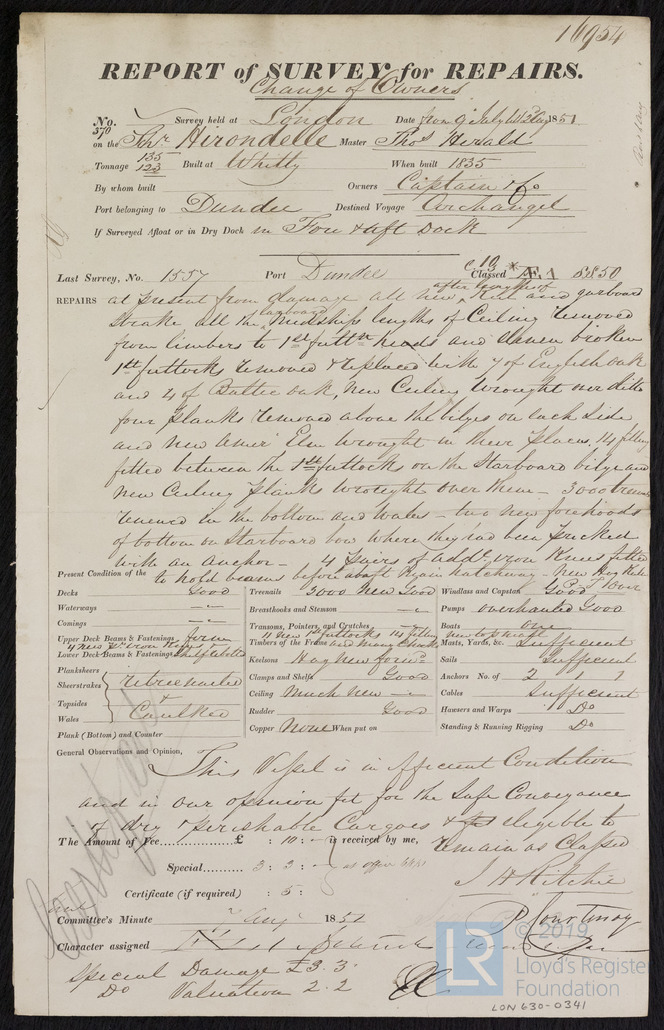 16954
REPORT of SURVEY for REPAIRS.
Change of Owners
No. 570 Survey held at London Date from 9 July to 2 Aug 1851
on the Schr Hirondelle Master Thos Herald
Tonnage 135 123 Built at Whitby When built 1835
By whom built Owners Captain & Co
Port belonging to Dundee Destined Voyage Archangel
If Surveyed Afloat or in Dry Dock in Fore & aft Dock
Last Survey, No. 1557 Port Dundee Classed * Æ 1 1850
REPAIRS at present from damage all new Keel and garboard
Strake all the larboard Midships lengths of Ceiling removed
from limbers to 1st futtk heads and eleven broken
1st futtocks removed & replaced with 7 of English oak
and 4 of Baltic oak, New Ceiling wrought over ditto
four planks removed above the bilges on each side
and new Amer Elm wrought in their places, 14 filling
fitted between the 1st futtocks on the Starboard bilge and
new Ceiling planks wrought over them - 3000 treenails
renewed in the bottom and Wales - two new forehoods
of bottom on Starboard bow where they had been pricked
with an anchor - 4 pairs of addl iron Knees fitted
to hold beams before & abaft Main hatchway -
Present Condition of the
Decks Good Treenails 3000 new Good Windlass and Capstan Good
Waterways Breasthooks and Stemson Pumps overhauled Good
Comings Transoms, Pointers, and Crutches Boats one
Upper Deck Beams & Fastenings Timbers of the Frame 11 new 1st futtocks 14 filling and many Chocks Masts, Yards, &c. Sufficient
Lower Deck Beams & Fastenings Keelsons Sails Sufficient
Planksheers Clamps and Shelfs Good Anchors No. of 2 1 1
Sheerstrakes retreenailed Ceiling Much new Cables Sufficient
Topsides & Rudder Good Hawsers and Warps Do
Wales Caulked Copper None When put on Standing & Running Rigging Do
Plank (Bottom) and Counter
General Observations and Opinion,
This Vessel is in efficient Condition
and in our opinion fit for the Safe Conveyance
of dry & perishable Cargoes & eligible to
remain as Classed
The Amount of Fee............ £ : 10 : - is received by me,
Special....... 3 : 3 : -
Certificate (if required) : 5 :
J H Ritchie
P Courtnay
Committee's Minute 7 Aug 1851
Character assigned
Special Damage £3.3
Do Valuation 2.2
© 2019
LR
Lloyd's Register
Foundation
LON 630-0341